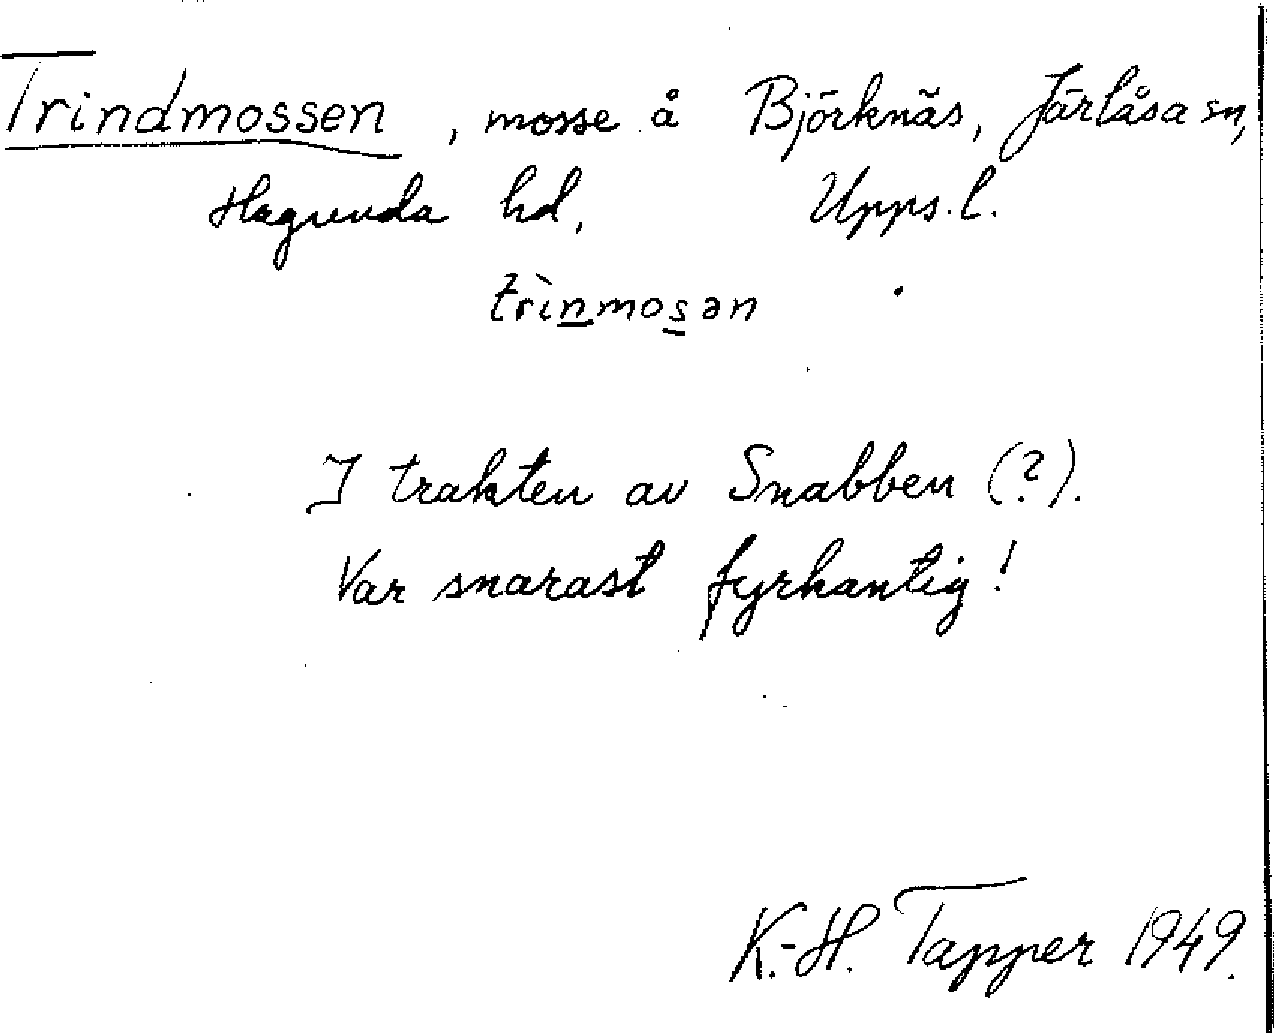 Trindmossen, mosse å Björknäs, Järlåsa sn,
Hagunda hd, Upps. l.
trìnmosən
I trakten av Snabben (?).
Var snarast fyrkantig!
K.-H. Tapper 1949.